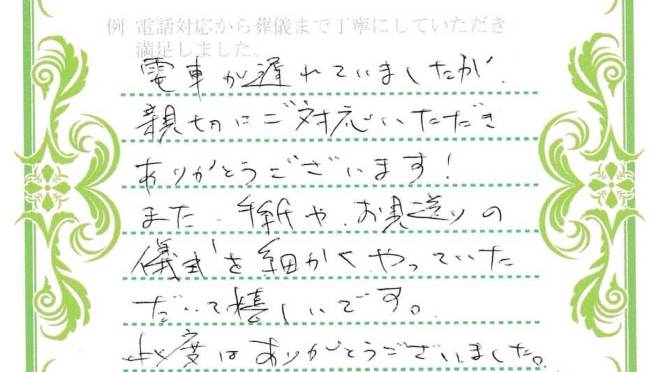 例 電話対応から葬儀まで丁寧にしていただき
満足しました。
電車が遅れていましたが、
親切にご対応いただき
ありがとうございます!
また、手紙や、お見送りの
儀式を細かくやっていた
だいて嬉しいです。
度はありがとうございました。